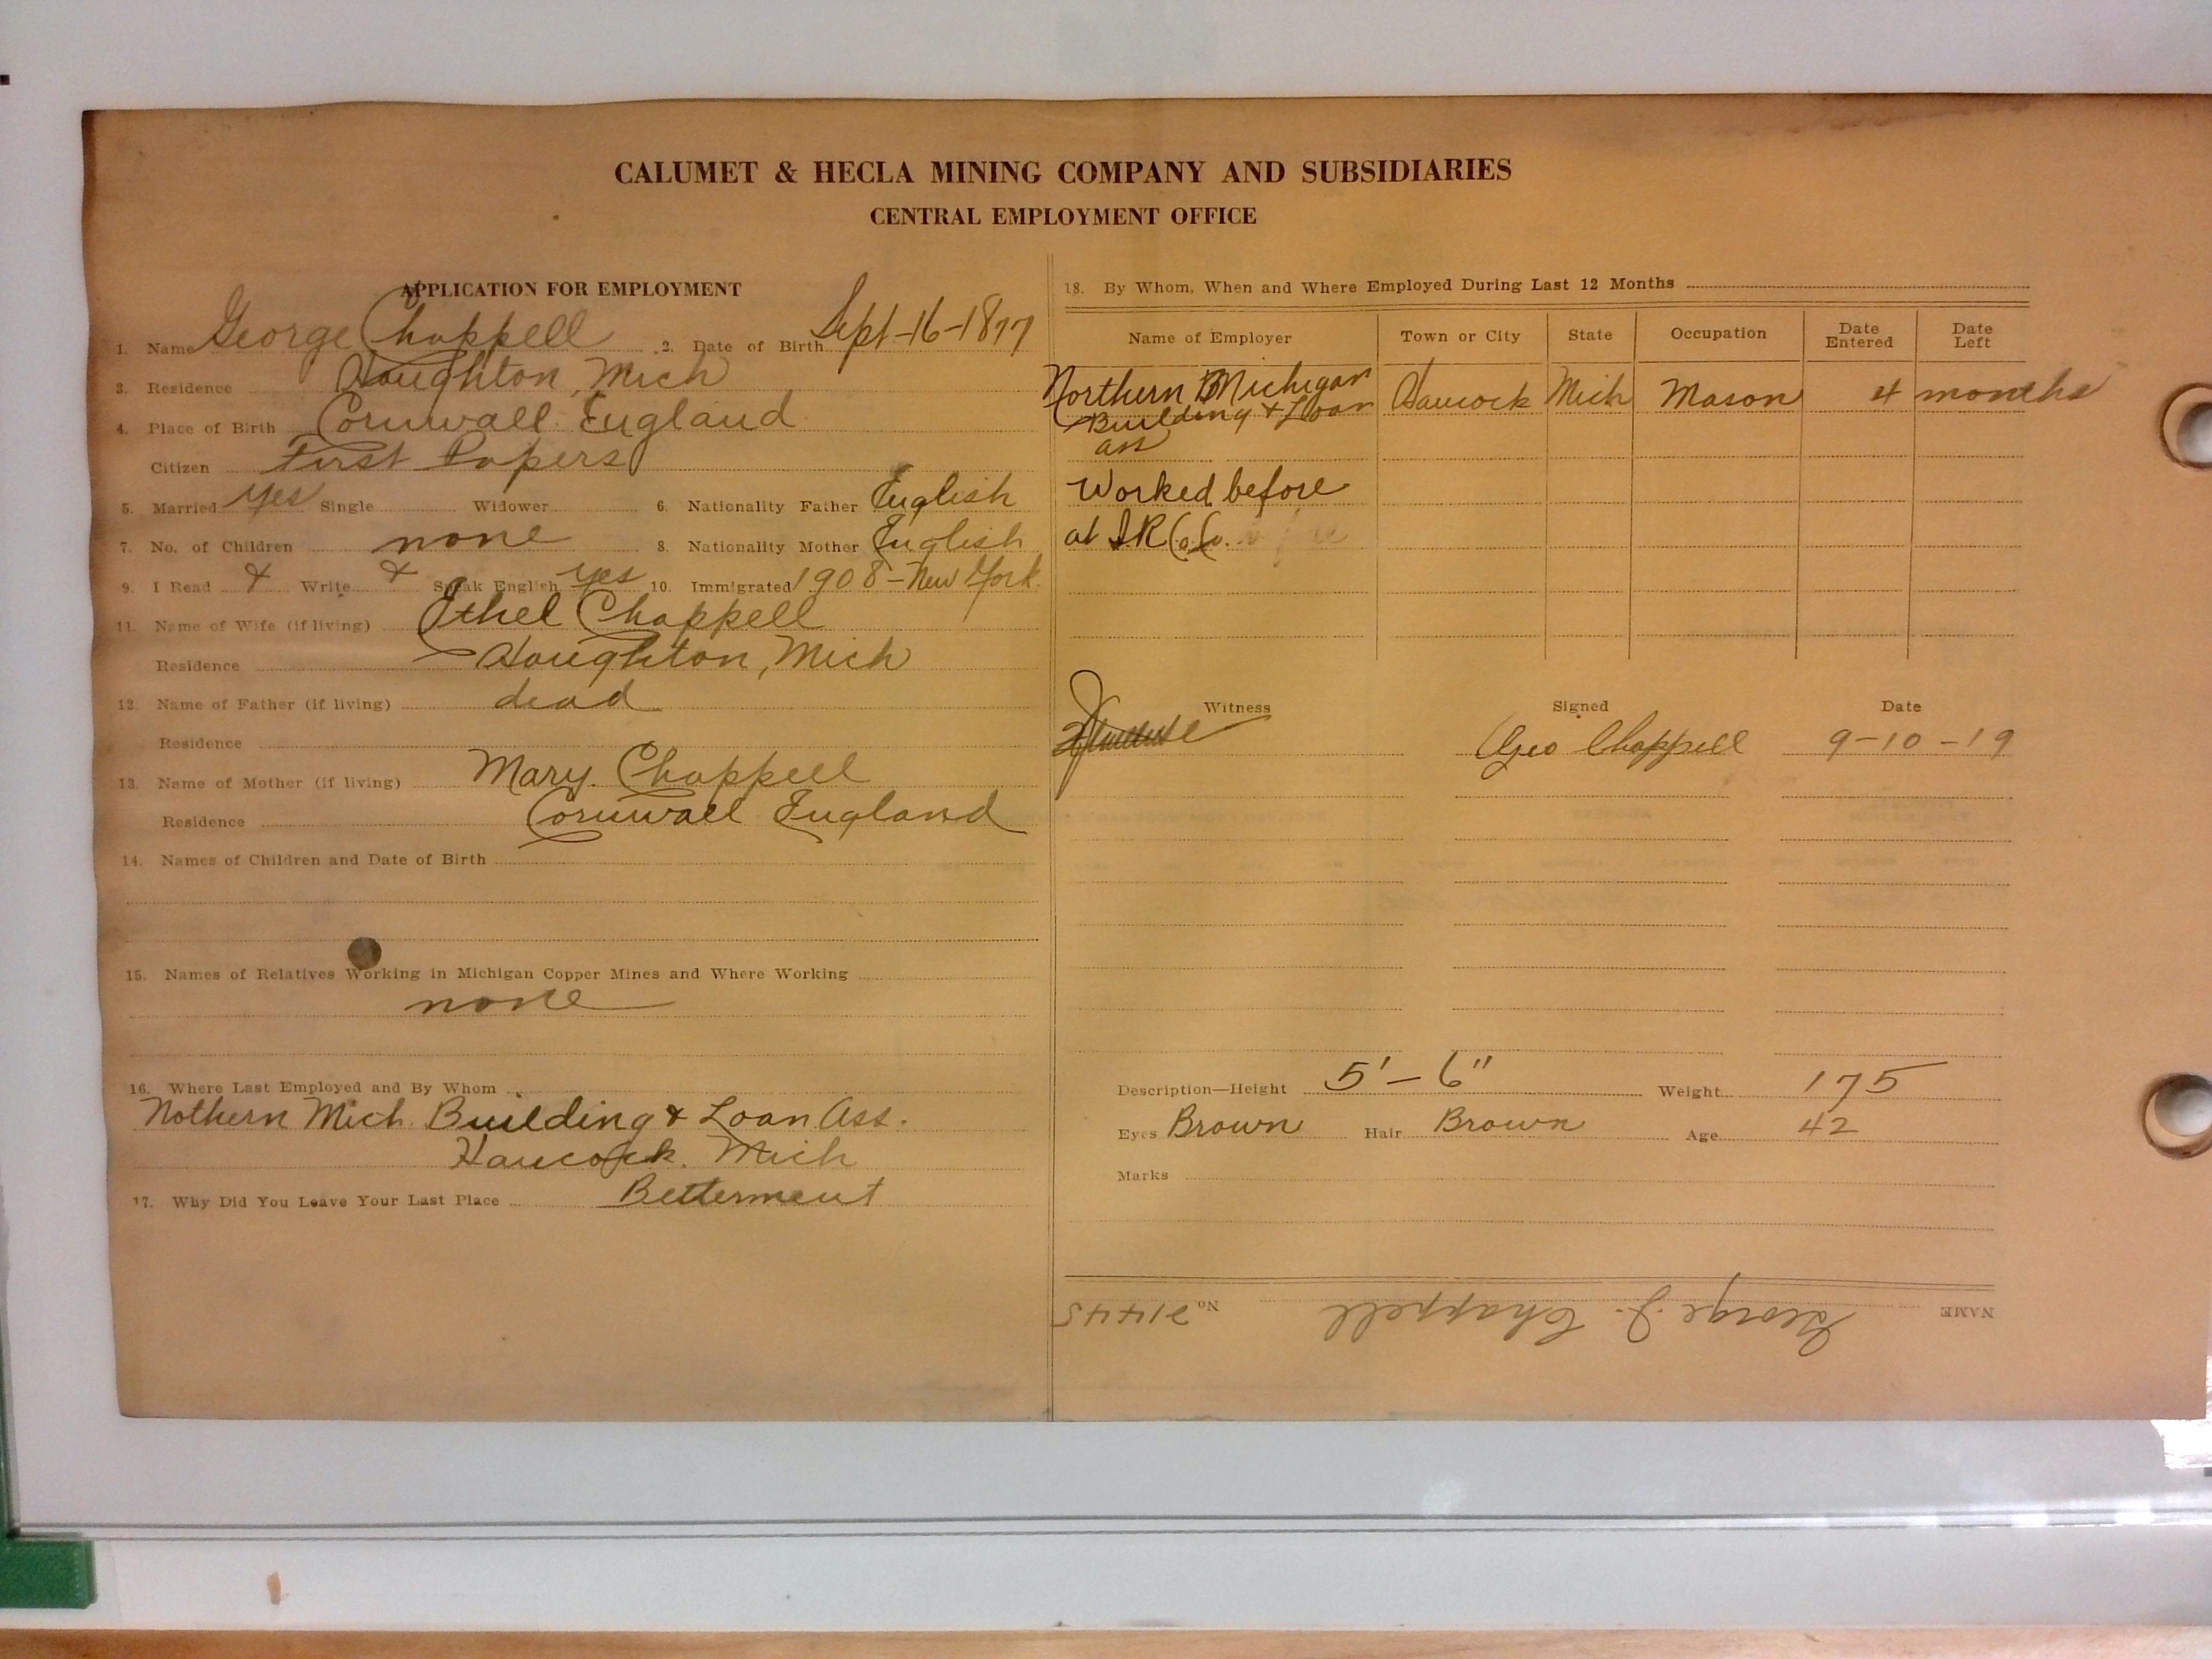 CALUMET & HECLA MINING COMPANY AND SUBSIDIARIES
CENTRAL EMPLOYMENT OFFICE
APPLICATION FOR EMPLOYMENT
1. Name George Chappell 2. Date of Birth Sept-16-1877
3. Residence Houghton, Mich
4. Place of Birth Cornwall England
Citizen First Papers
5. Married Yes Single Widower 6. Nationality Father English
7. No. of Children none 8. Nationality Mother English
9. I Read + Write + Speak English yes 10. Immigrated 1908-New York
11. Name of Wife (if living) Ethel Chappell
Residence Houghton, Mich
12. Name of Father (if living) dead
Residence
13. Name of Mother (if living) Mary. Chappell
Residence Cornwall England
14. Names of Children and Date of Birth
15. Names of Relatives Working in Michigan Copper Mines and Where Working
none
16. Where Last Employed and By Whom
Nothern Mich. Building & Loan Ass.
Hancock. Mich
17. Why Did You Leave Your Last Place Betterment
18. By Whom, When and Where Employed During Last 12 Months
Name of Employer Town or City State Occupation Date Entered Date Left
Northern Michigan Hancock Mich Mason 4 months
Building & Loan
ass
Worked before
at I.R.Co.
Witness Signed Date
Geo Chappell 9-10-19
Description—Height 5'-6" Weight 175
Eyes Brown Hair Brown Age 42
Marks
NAME George J. Chappell No. 21445